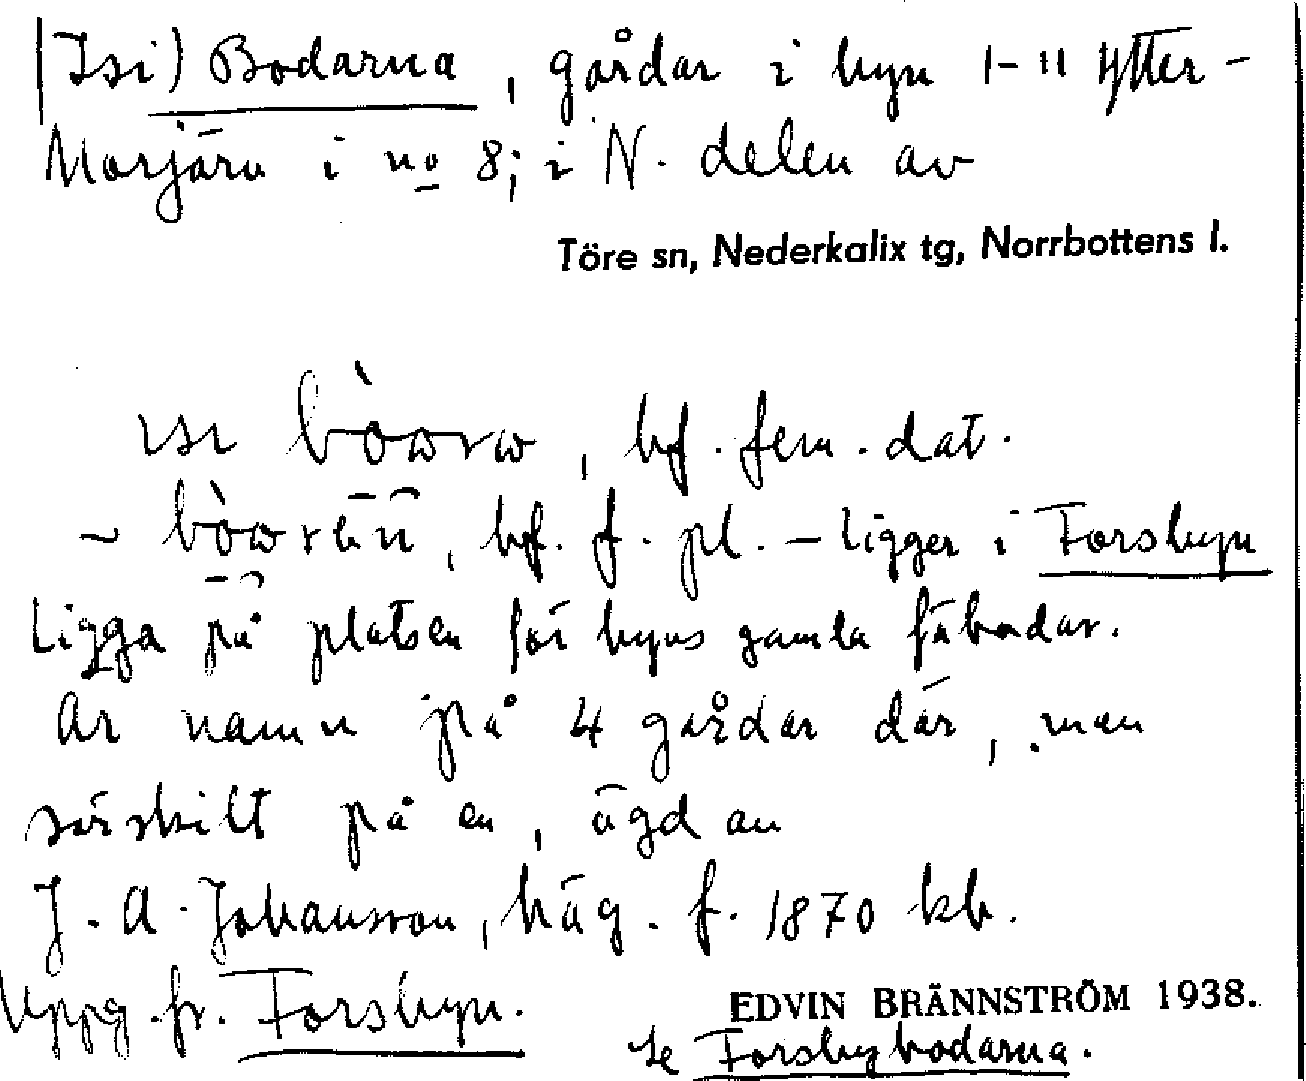 (Isi) Bodarna, gårdar i byn 1-11 Ytter-
Morjärv i no 8; i N. delen av
Töre sn, Nederkalix tg, Norrbottens l.
bf. fem. dat.
bf. f. pl. – ligger i Forsbyn
Ligga på platsen för byns gamla fäbodar.
Är namn på 4 gårdar där, men
särskilt på en, ägd av
J. A. Johansson, häg. f. 1870 kb.
Uppg. fr. Forsbyn.
EDVIN BRÄNNSTRÖM 1938.
Se Forsbybodarna.